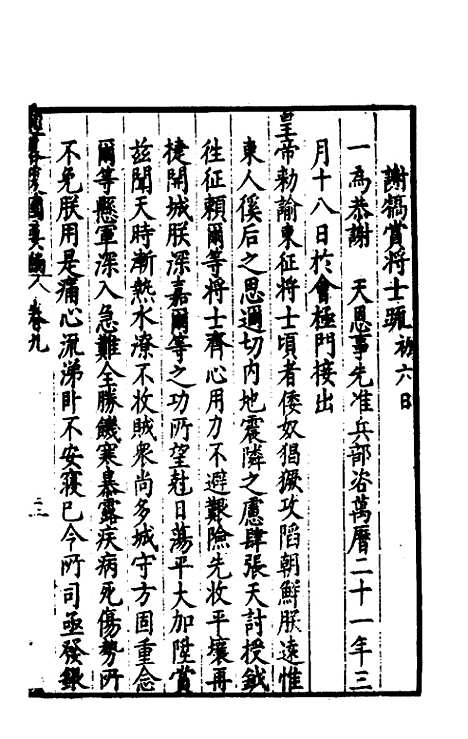 謝犒賞將士疏初六日
一爲恭謝 天恩事先准兵部咨萬曆二十一年三
月十八日於會極門接出
皇帝勅諭東征將士頃者倭奴猖獗攻陷朝鮮朕遠惟
東人徯后之思邇切内地震隣之慮肆張天討授鉞
徃征頼爾等將士齊心用力不避艱險先收平壤再
捷開城朕深嘉爾等之功所望尅日蕩平大加陞賞
茲聞天時漸熱水潦不收賊衆尚多城守方固重念
爾等懸軍深入急難全勝饑寒暴露疾病死傷勢所
不免朕用是痛心流涕卧不安寢已令所司亟發銀
經畧復國要編 卷九
二